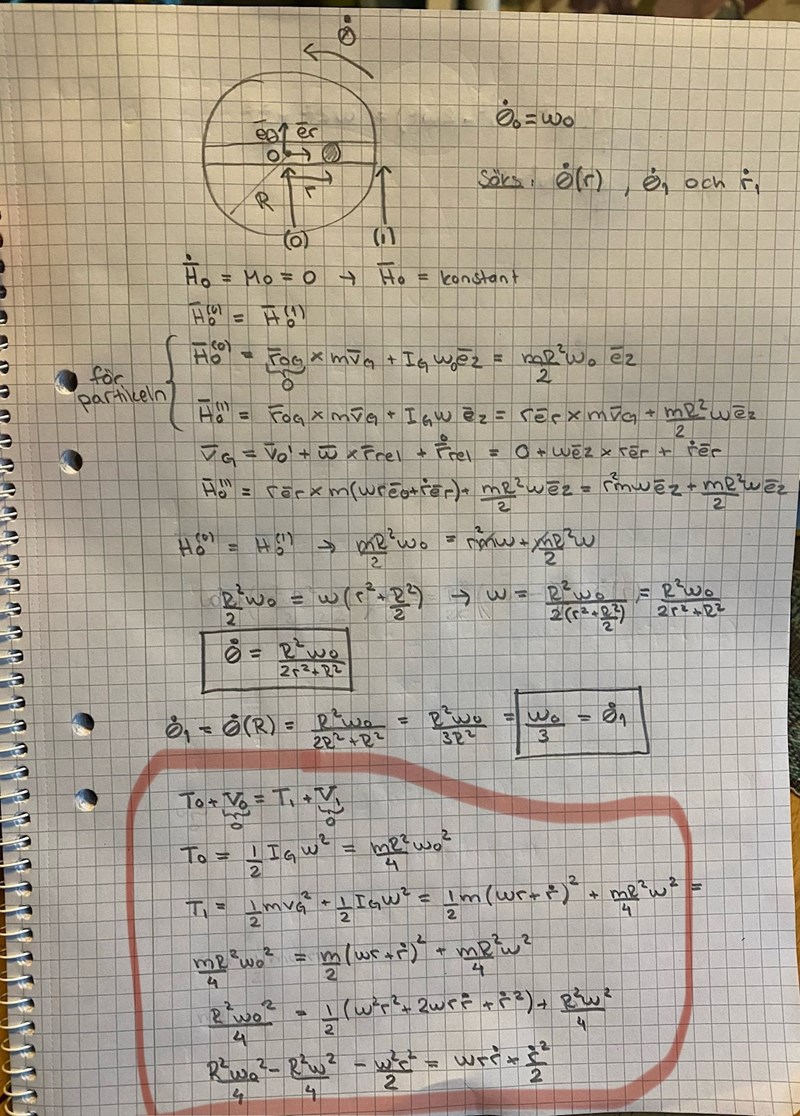 θ̇
θ̇₀ = ω₀
e̅θ e̅r
O
R r
Söks: θ̇(r), θ̇₁ och ṙ₁
(0) (1)
Ḣ̅₀ = M₀ = 0 → H̅₀ = konstant
H̅₀⁽⁰⁾ = H̅₀⁽¹⁾
för partikeln { H̅₀⁽⁰⁾ = r̅OG × mv̅G + IG ω₀e̅z = mR²/2 ω₀ e̅z
0
H̅₀⁽¹⁾ = r̅OG × mv̅G + IG ω e̅z = re̅r × mv̅G + mR²/2 ωe̅z
v̅G = v̅O' + ω̅ × r̅rel + r̊̅rel = 0 + ωe̅z × re̅r + ṙe̅r
H̅₀⁽¹⁾ = re̅r × m(ωre̅θ + ṙe̅r) + mR²/2 ωe̅z = r²mωe̅z + mR²/2 ωe̅z
H₀⁽⁰⁾ = H₀⁽¹⁾ → mR²/2 ω₀ = r²mω + mR²/2 ω
R²/2 ω₀ = ω(r² + R²/2) → ω = R²ω₀/2(r² + R²/2) = R²ω₀/2r² + R²
θ̇ = R²ω₀/2r² + R²
θ̇₁ = θ̇(R) = R²ω₀/2R² + R² = R²ω₀/3R² = ω₀/3 = θ̇₁
T₀ + V₀ = T₁ + V₁
0 0
T₀ = 1/2 IG ω² = mR²/4 ω₀²
T₁ = 1/2 mvG² + 1/2 IGω² = 1/2 m(ωr + ṙ)² + mR²/4 ω² =
mR²/4 ω₀² = m/2 (ωr + ṙ)² + mR²/4 ω²
R²ω₀²/4 = 1/2 (ω²r² + 2ωrṙ + ṙ²) + R²ω²/4
R²ω₀²/4 - R²ω²/4 - ω²r²/2 = ωrṙ + ṙ²/2